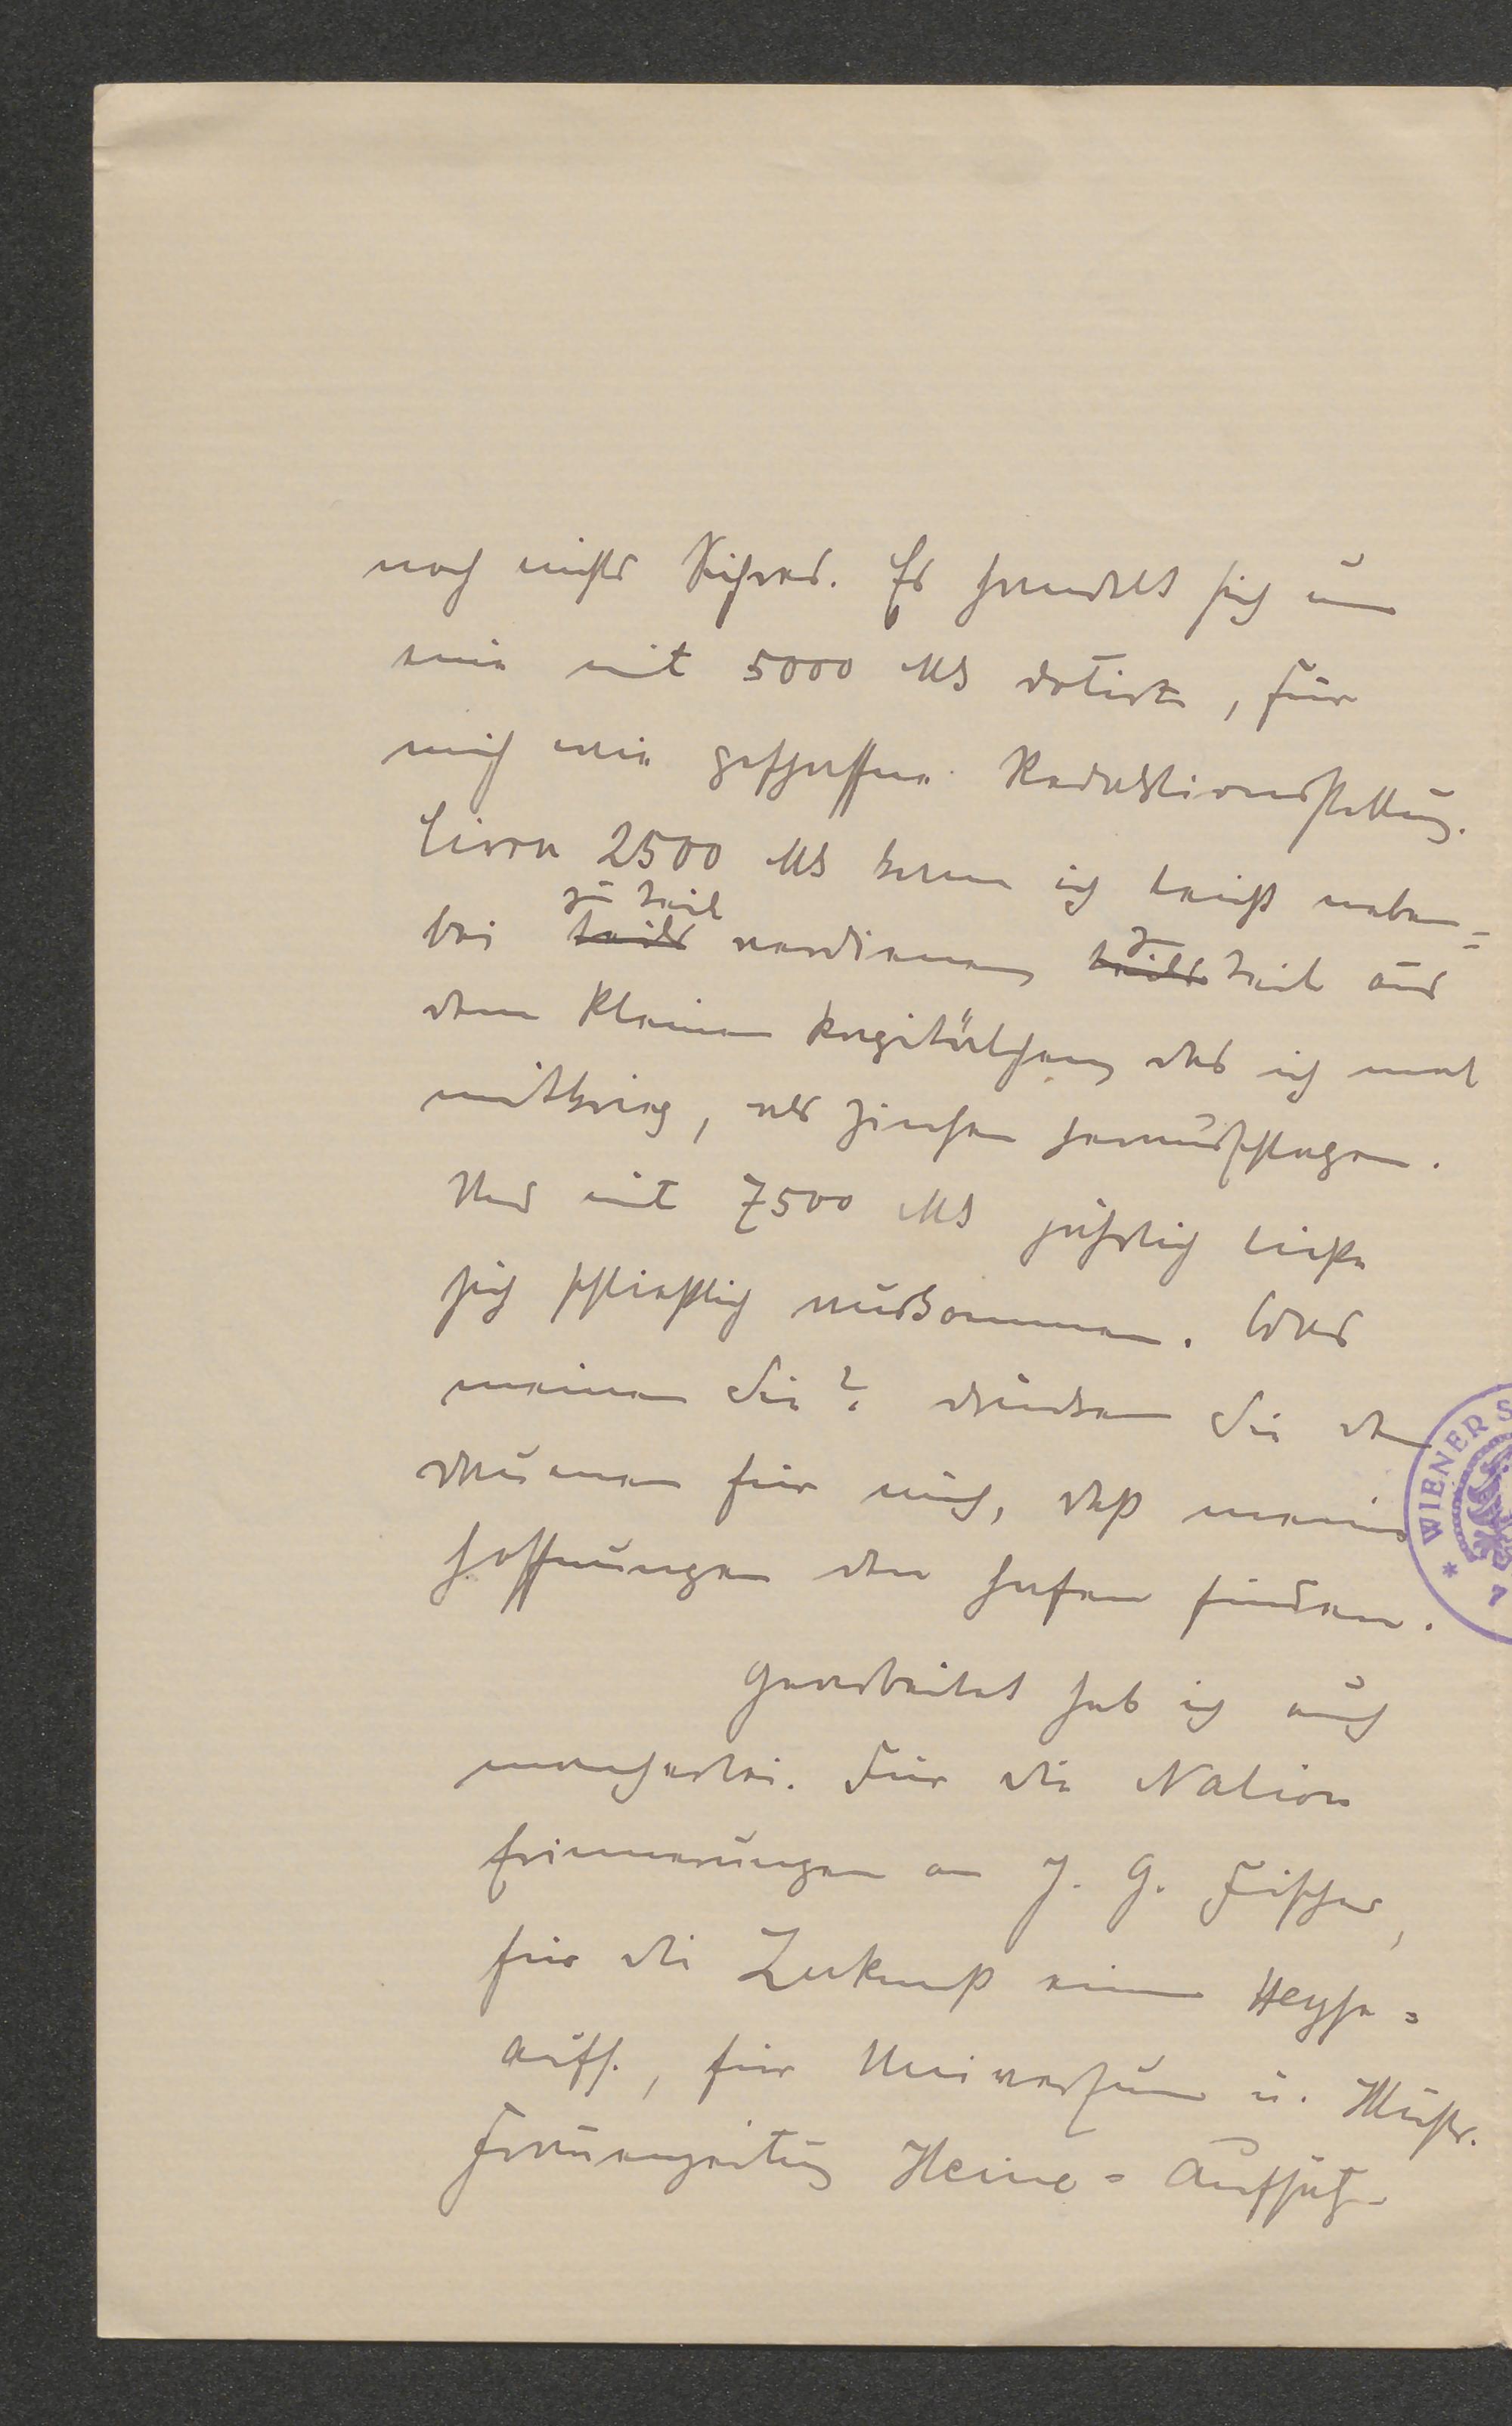 noch nichts Sichres. Es handelt sich um
eine mit 5000 Mk dotirte, für
mich wie geschaffene Redaktionsstellung.
Circa 2500 Mk kann ich leicht neben=
zu teil zu
bei teils verdienen, teils teil aus
dem kleinen Kapitälchen, das ich mal
mitkrieg, als Zinsen herausschlagen.
Und mit 7500 Mk jährlich ließe
sich schließlich auskommen. Was
meinen Sie? drücken Sie den
Daumen für mich, daß meine
Hoffnungen den Hafen finden.
Gearbeitet hab ich auch
mancherlei. Für die Nation
Erinnerungen an J. G. Fischer,
für die Zukunft einen Heyse=
Aufs., für Universum u. Illustr.
Frauenzeitung Heine=Aufsätze
* WIENER S
7